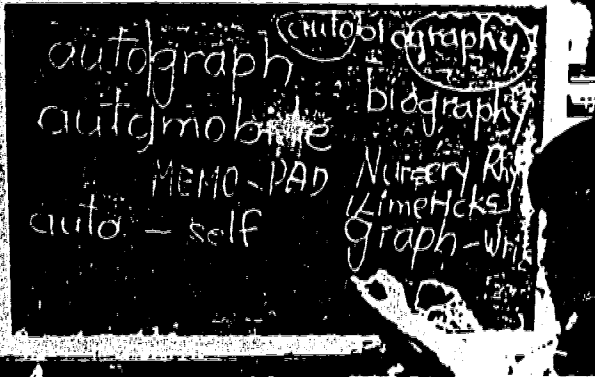 autograph
automobile
MEMO-PAD
auto - self
autobiography
biography
Nursery Rhy
Limericks
graph - Writ